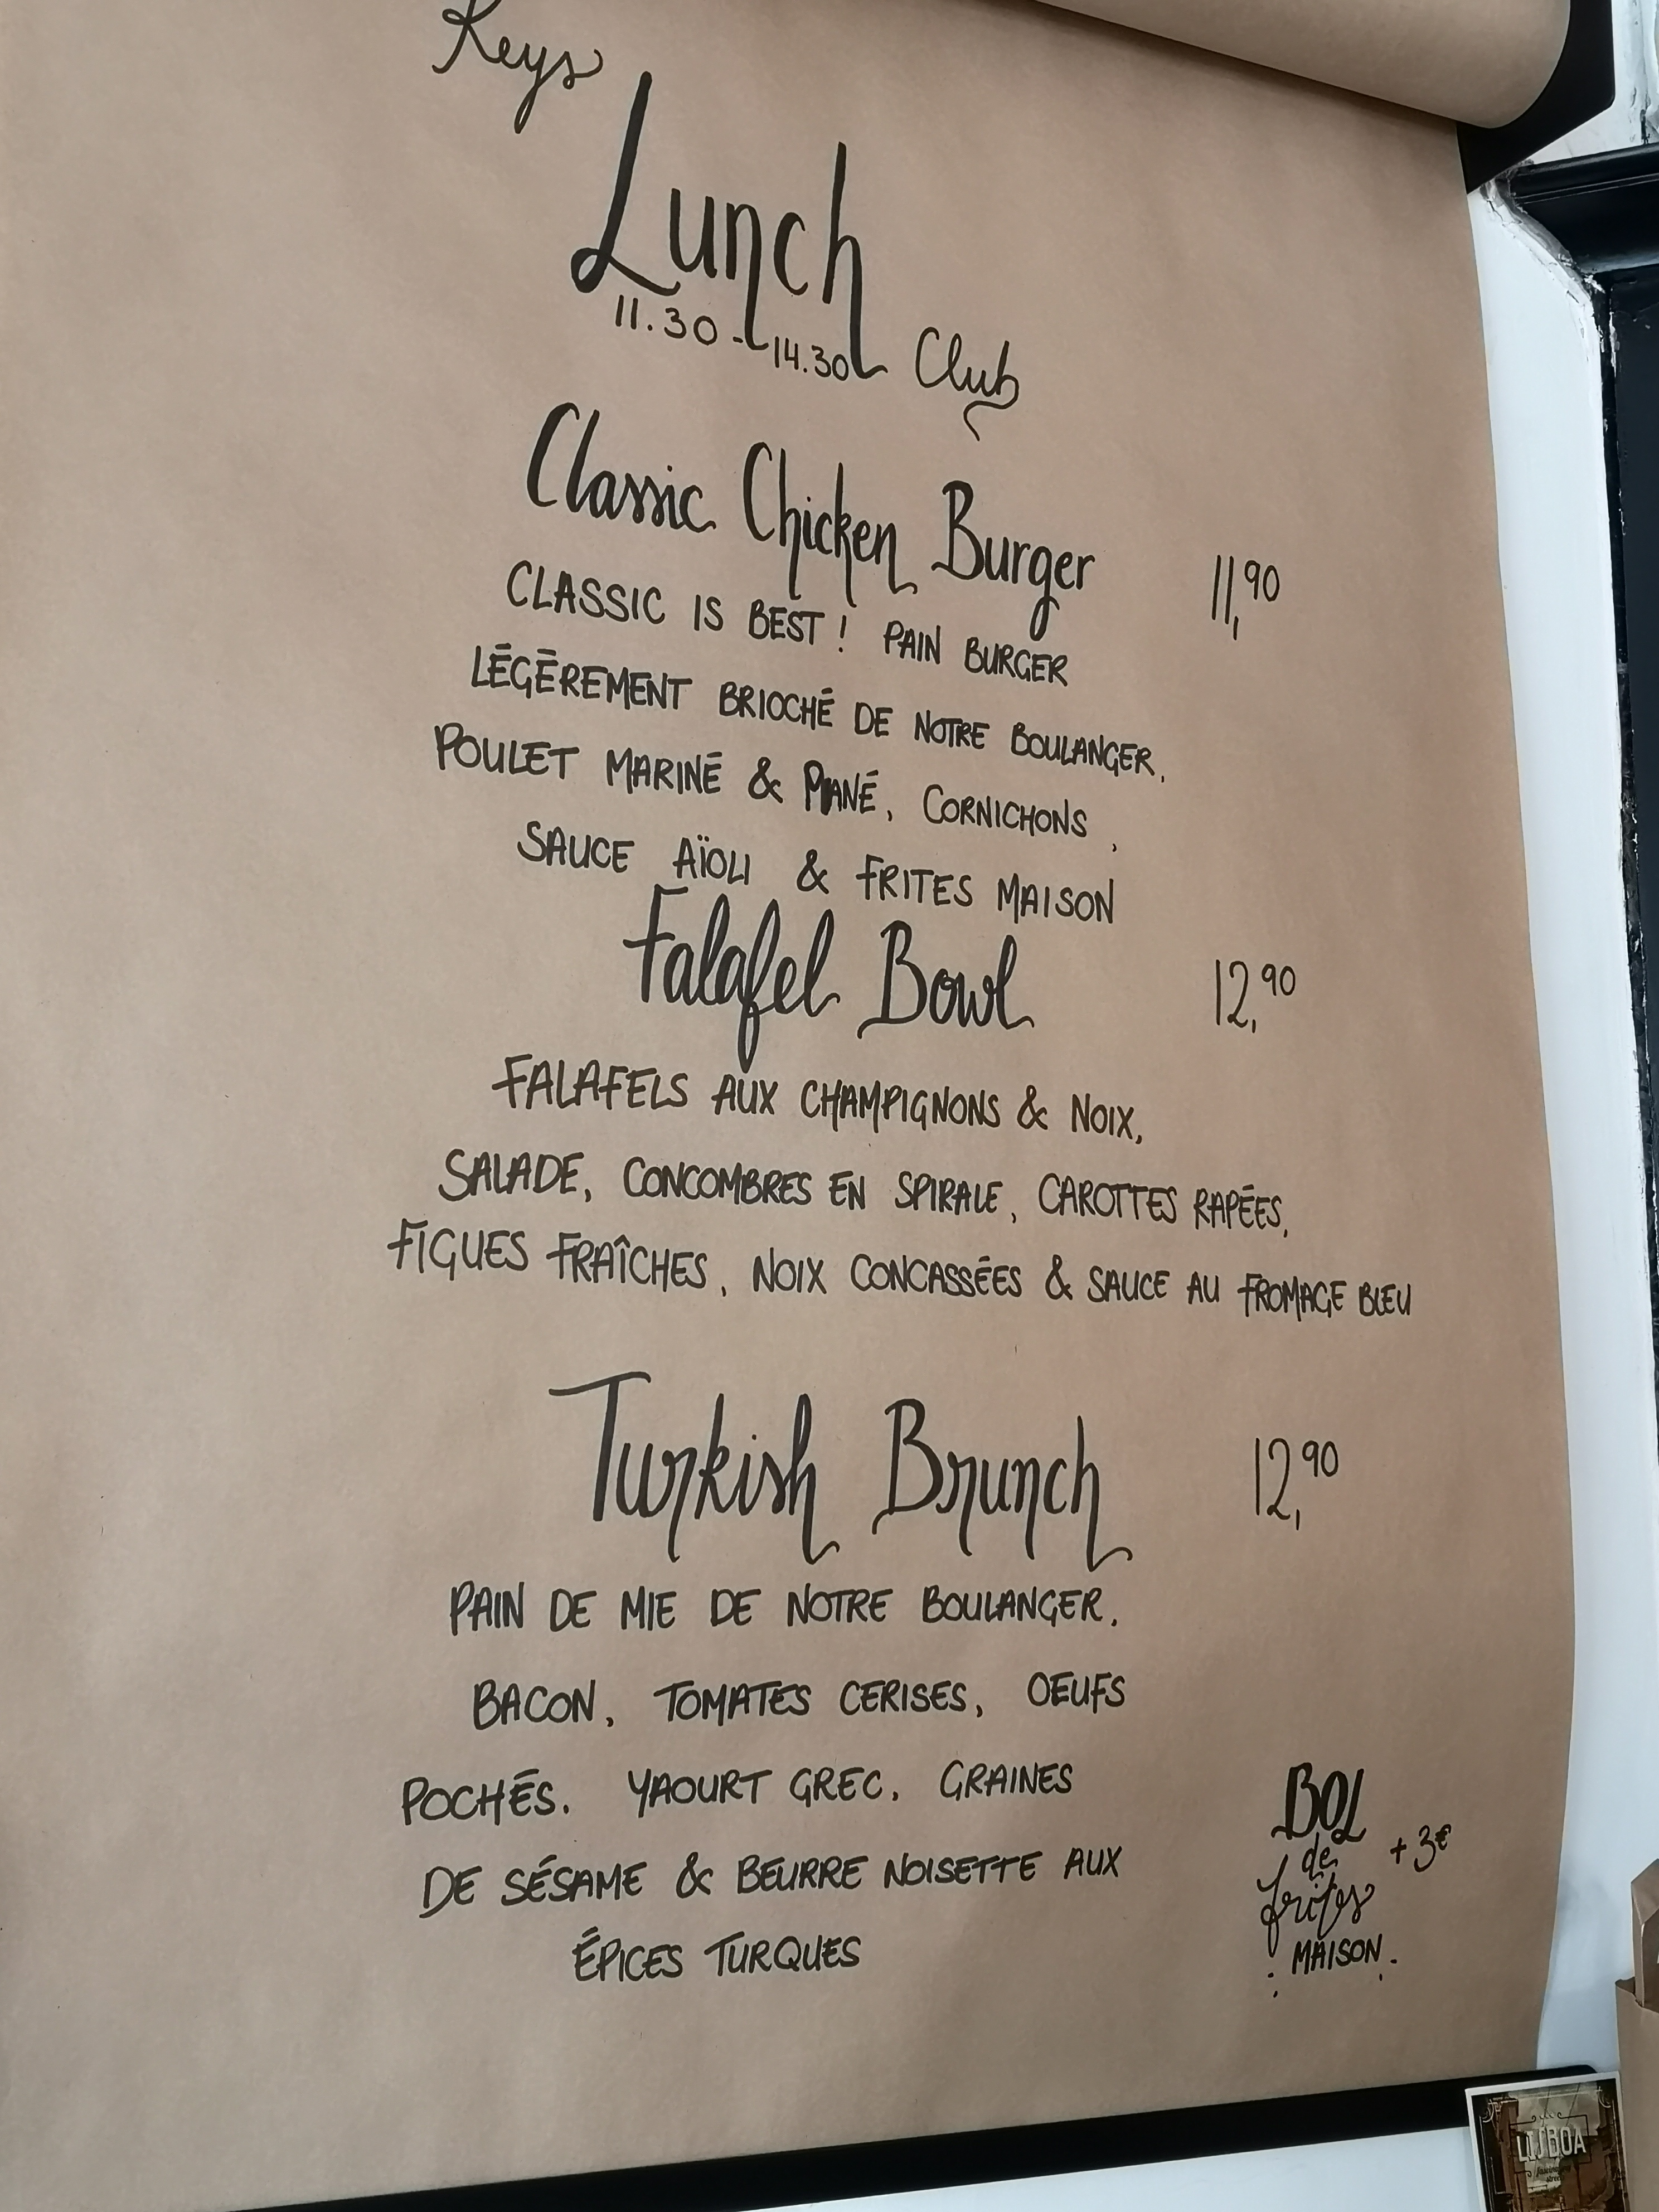 Keys
Lunch
11.30 - 14.30
Club
Classic Chicken Burger 11,90
CLASSIC IS BEST! PAIN BURGER
LÉGÈREMENT BRIOCHÉ DE NOTRE BOULANGER,
POULET MARINÉ & PANÉ, CORNICHONS,
SAUCE AÏOLI & FRITES MAISON
Falafel Bowl 12,90
FALAFELS AUX CHAMPIGNONS & NOIX,
SALADE, CONCOMBRES EN SPIRALE, CAROTTES RAPÉES,
FIGUES FRAÎCHES, NOIX CONCASSÉES & SAUCE AU FROMAGE BLEU
Turkish Brunch 12,90
PAIN DE MIE DE NOTRE BOULANGER.
BACON, TOMATES CERISES, OEUFS
POCHÉS. YAOURT GREC, GRAINES
DE SÉSAME & BEURRE NOISETTE AUX
ÉPICES TURQUES
BOL
de + 3€
frites
MAISON.
LISBOA